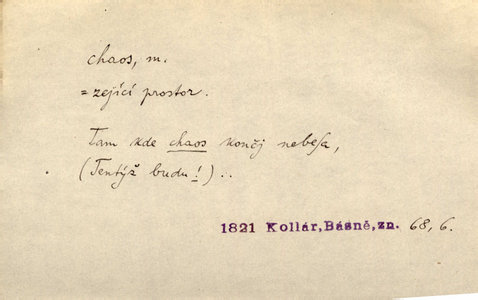 chaos, m.
= zející prostor.
Tam kde chaos končj nebeſa,
(Tentýž budu!)..
1821 Kollár, Básně, zn. 68, 6.